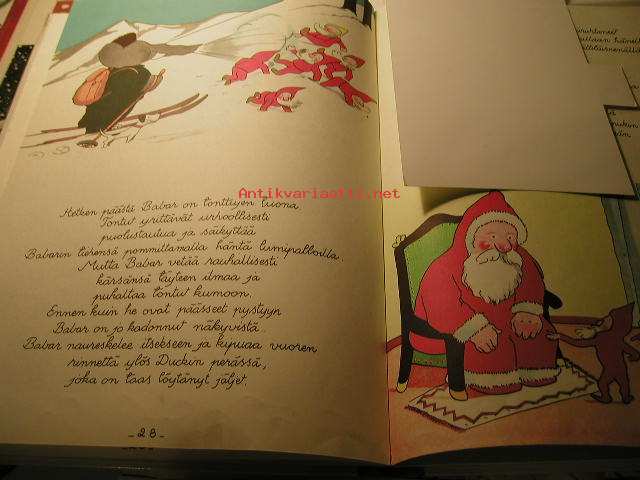 Hetken päästä Babar on tonttujen luona.
Tontut yrittävät urhoollisesti
puolustautua ja säikyttää
Babarin tiehensä pommittamalla häntä lumipalloilla.
Mutta Babar vetää rauhallisesti
kärsänsä täyteen ilmaa ja
puhaltaa tontut kumoon.
Ennen kuin he ovat päässeet pystyyn
Babar on jo kadonnut näkyvistä.
Babar naureskelee itsekseen ja kipuaa vuoren
rinnettä ylös Duckin perässä,
joka on taas löytänyt jäljet.
_ 28 _
Antikvariaatti.net